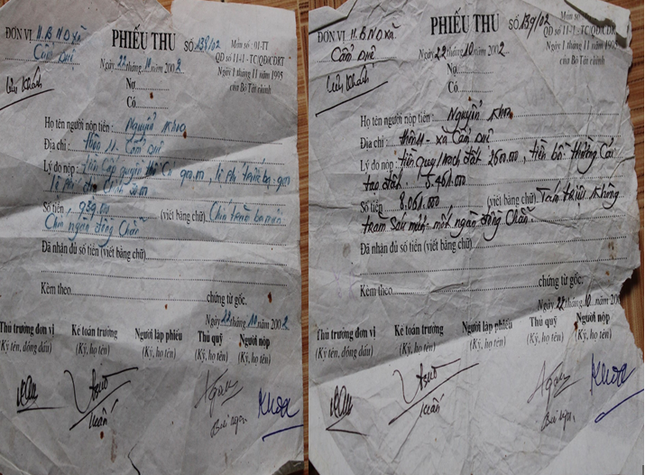 ĐƠN VỊ U.B.N.D Xã
Cẩm Duệ
PHIẾU THU
Số 138/02
Mẫu số: 01-TT
QĐ số 11-1-TC/QĐ/CĐKT
Ngày 1 tháng 11 năm 1995
của Bộ Tài chính
Ngày 22 tháng 10 năm 2002
Nợ
Có
Họ tên người nộp tiền: Nguyễn Khoa
Địa chỉ: thôn 11. Cẩm Duệ
Lý do nộp: tiền Cấp quyền
lệ phí
Số tiền: 939.00 (viết bằng chữ) Chín trăm ba mươi
Chín ngàn đồng Chẵn
Đã nhận đủ số tiền (viết bằng chữ)
Kèm theo chứng từ gốc.
Ngày 22 tháng 10 năm 2002
Thủ trưởng đơn vị Kế toán trưởng Người lập phiếu Thủ quỹ Người nộp
(Ký tên, đóng dấu) (Ký, họ tên) (Ký, họ tên) (Ký, họ tên) (Ký, họ tên)
Khoa
ĐƠN VỊ U.B.N.D Xã
Cẩm Duệ
PHIẾU THU
Số 139/02
Mẫu số: 01-TT
QĐ số 11-1-TC/QĐ/CĐKT
Ngày 1 tháng 11 năm 1995
của Bộ Tài chính
Ngày 22 tháng 10 năm 2002
Nợ
Có
Họ tên người nộp tiền: Nguyễn Khoa
Địa chỉ: thôn 11 - xã Cẩm Duệ
Lý do nộp: tiền Quy hoạch đất 2600.000, tiền bồi thường Cải
tạo đất: 5.461.000
Số tiền 8.061.000 (viết bằng chữ) Tám triệu Không
trăm Sáu mươi mốt ngàn đồng Chẵn.
Đã nhận đủ số tiền (viết bằng chữ)
Kèm theo chứng từ gốc.
Ngày 22 tháng 10 năm 2002
Thủ trưởng đơn vị Kế toán trưởng Người lập phiếu Thủ quỹ Người nộp
(Ký tên, đóng dấu) (Ký, họ tên) (Ký, họ tên) (Ký, họ tên) (Ký, họ tên)
Khoa